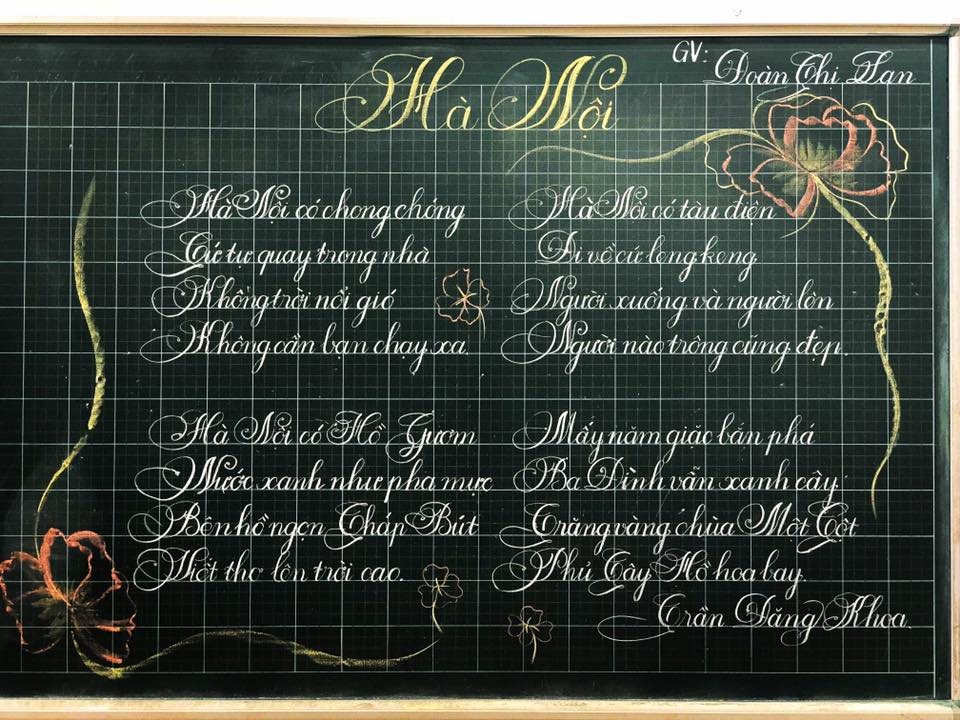 GV: Đoàn Thị Lan
Hà Nội
Hà Nội có chong chóng
Cứ tự quay trong nhà
Không trời nổi gió
Không cần bạn chạy xa.
Hà Nội có Hồ Gươm
Nước xanh như pha mực
Bên hồ ngọn Tháp Bút
Viết thơ lên trời cao.
Hà Nội có tàu điện
Đi về cứ leng keng
Người xuống và người lên
Người nào trông cũng đẹp.
Mấy năm giặc bắn phá
Ba Đình vẫn xanh cây
Trăng vàng chùa Một Cột
Phủ Tây Hồ hoa bay.
Trần Đăng Khoa.